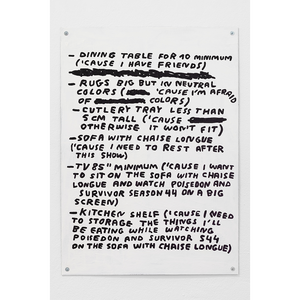 – DINING TABLE FOR 10 MINIMUM
('CAUSE I HAVE FRIENDS)
– RUGS BIG BUT IN NEUTRAL
COLORS ( 'CAUSE I'M AFRAID
OF COLORS)
– CUTLERY TRAY LESS THAN
5 CM TALL ('CAUSE
OTHERWISE IT WON'T FIT)
– SOFA WITH CHAISE LONGUE
('CAUSE I NEED TO REST AFTER
THIS SHOW)
– TV 85" MINIMUM ('CAUSE I WANT
TO SIT ON THE SOFA WITH CHAISE
LONGUE AND WATCH POISEDON AND
SURVIVOR SEASON 44 ON A BIG
SCREEN)
– KITCHEN SHELF ('CAUSE I NEED
TO STORAGE THE THINGS I'LL
BE EATING WHILE WATCHING
POISEDON AND SURVIVOR S44
ON THE SOFA WITH CHAISE LONGUE)